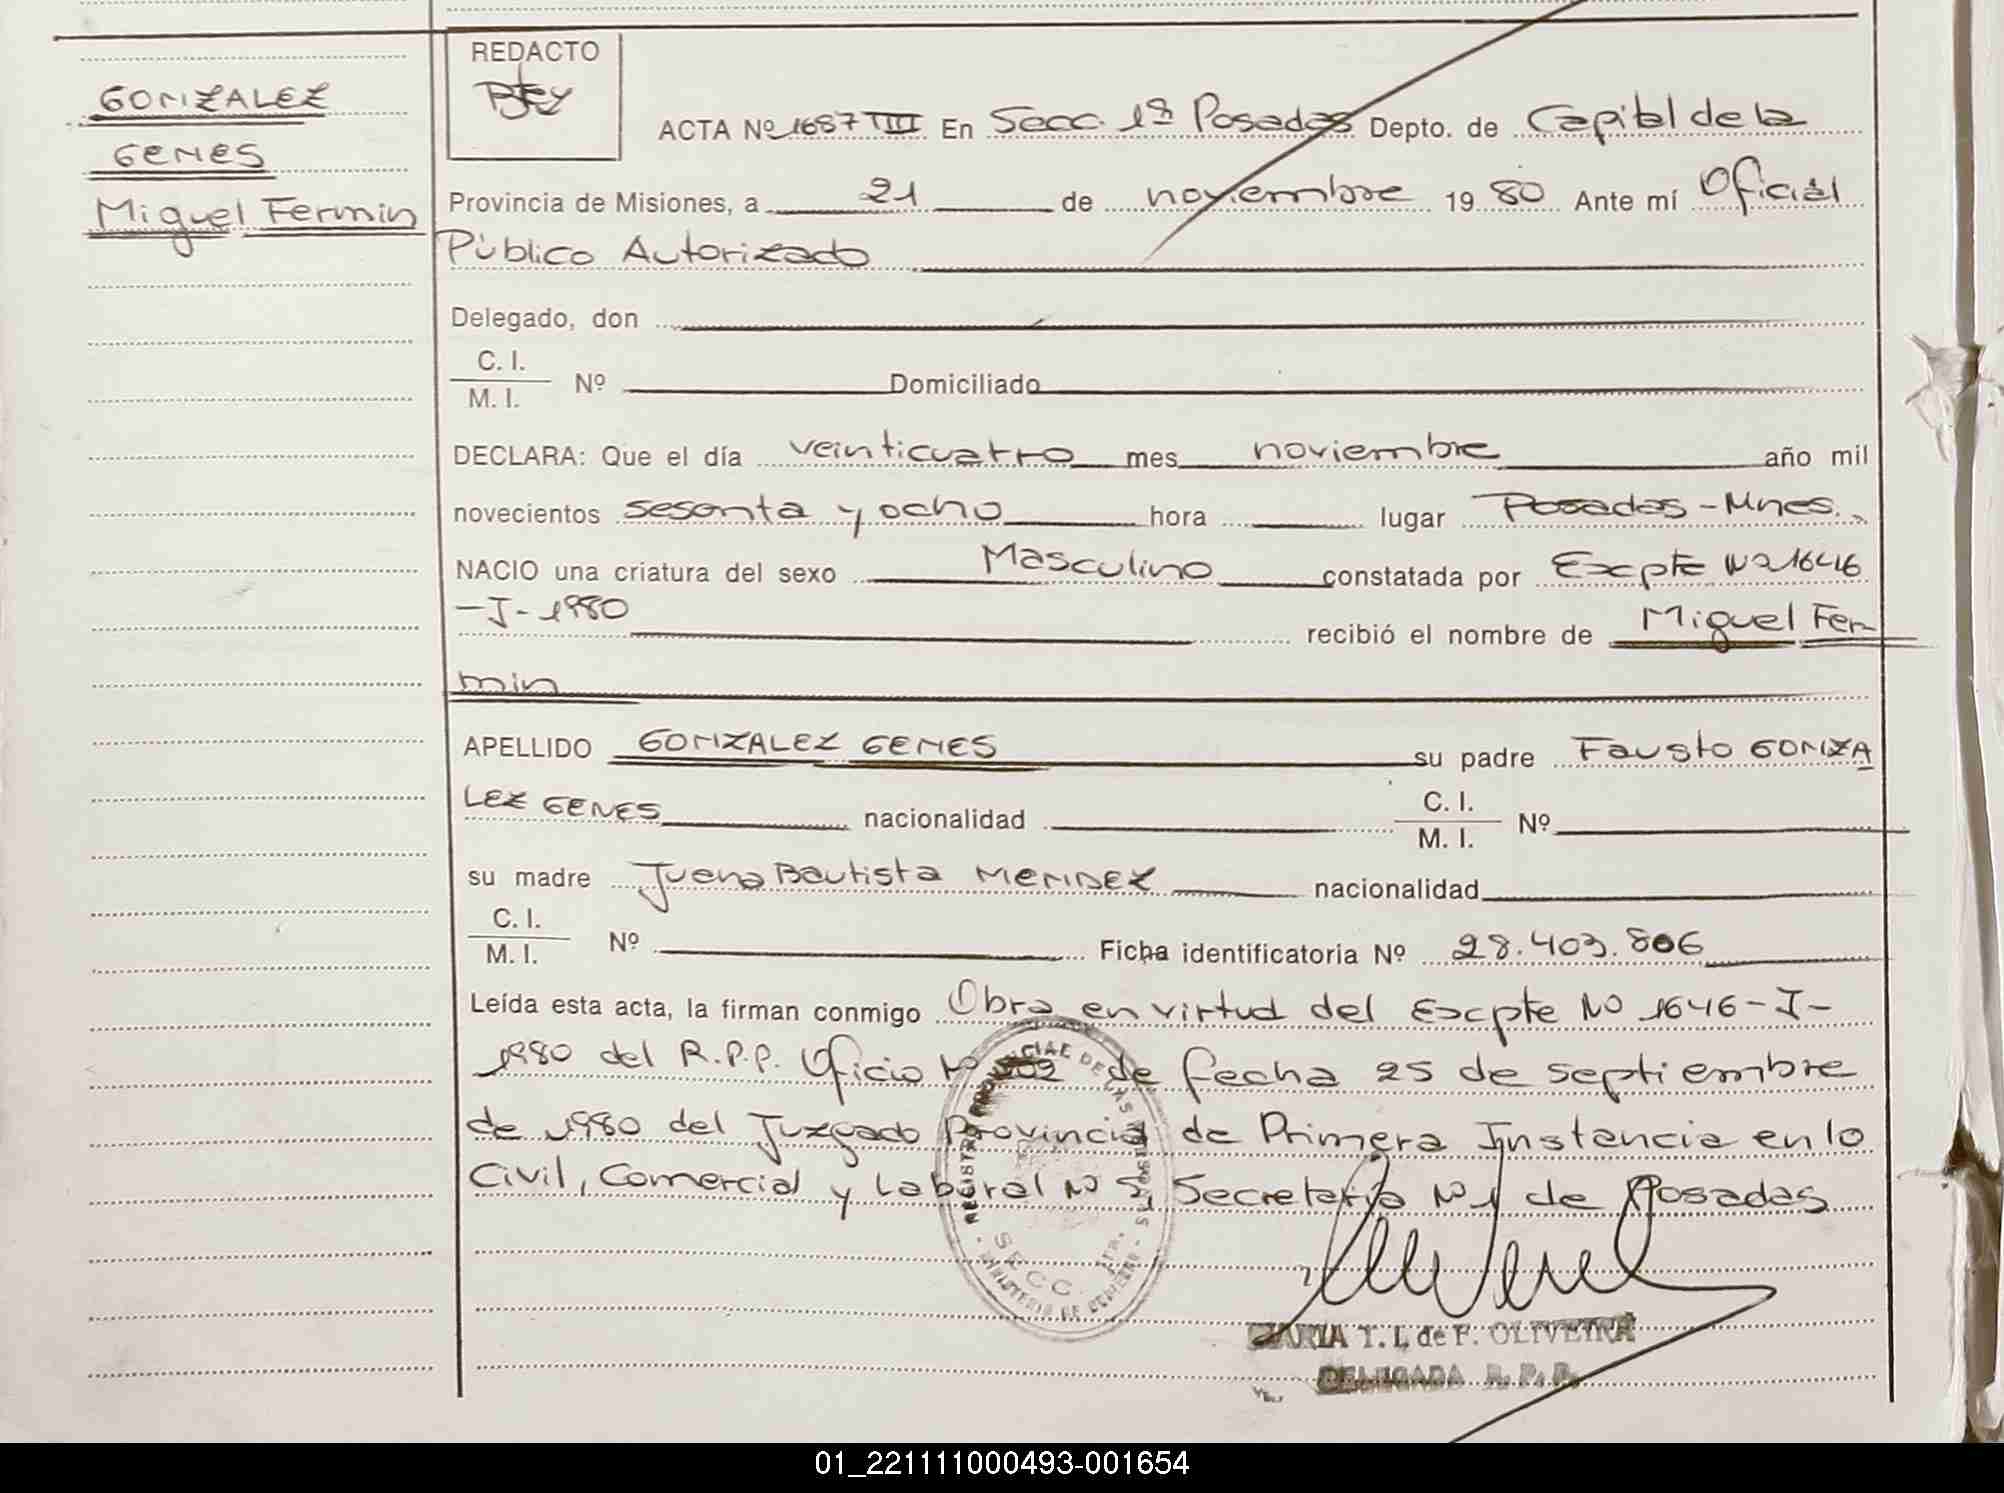 GONZALEZ
GENES
Miguel Fermin
REDACTO
ACTA Nº 1687 TIII En Secc. 1ª Posadas Depto. de Capital de la
Provincia de Misiones, a 21 de noviembre 1980 Ante mí Oficial
Público Autorizado
Delegado, don
C. I.
M. I. Nº Domiciliado
DECLARA: Que el día veinticuatro mes noviembre año mil
novecientos sesenta y ocho hora lugar Posadas - Mnes.
NACIO una criatura del sexo Masculino constatada por Excpte Nº 1646
-J- 1980 recibió el nombre de Miguel Fer
min
APELLIDO GONZALEZ GENES su padre Fausto GONZA
LEZ GENES nacionalidad C. I. M. I. Nº
su madre Juana Bautista MENDEZ nacionalidad
C. I.
M. I. Nº Ficha identificatoria Nº 28.403.806
Leída esta acta, la firman conmigo Obra en virtud del Excpte Nº 1646 - J -
1980 del R.P.P. Oficio Nº de fecha 25 de septiembre
de 1980 del Juzgado Provincial de Primera Instancia en lo
Civil, Comercial y Laboral Nº 2, Secretaría Nº 1 de Posadas
REGISTRO PROVINCIAL DE LAS PERSONAS
SECC. 1ra.
MINISTERIO DE GOBIERNO
MARIA T. I. de F. OLIVEIRA
DELEGADA R. P. P.
01_221111000493-001654